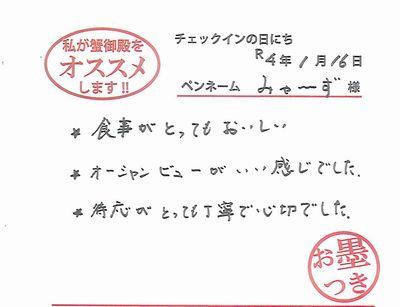 私が蟹御殿を
オススメ
します!!
チェックインの日にち
R4年1月16日
ペンネーム みゃーず 様
* 食事がとってもおいしい
* オーシャンビューがいい感じでした。
* 待応がとっても丁寧で心切でした。
お墨
つき